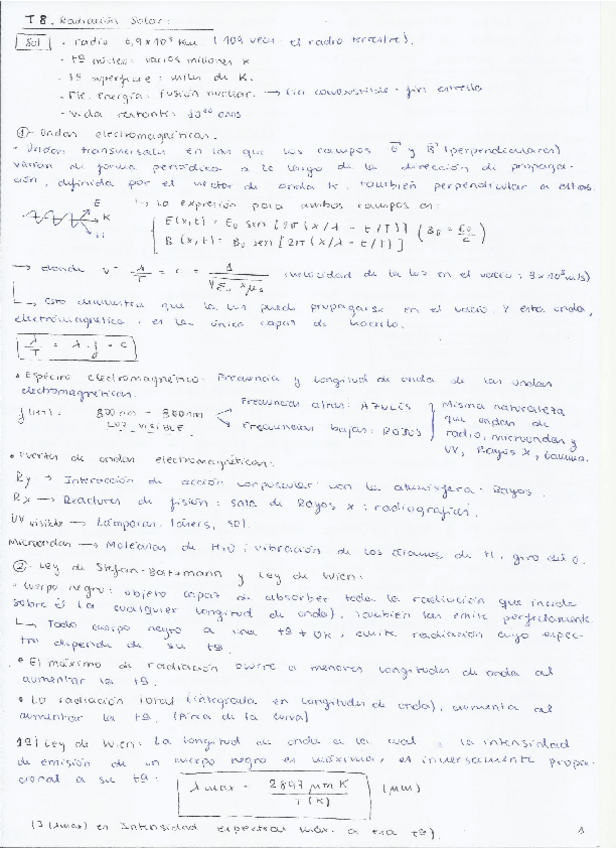 T8. Radiación Solar:
Sol · radio 6,9 x 10⁵ km (109 veces el radio terrestre).
· tª núcleo: varios millones K
· tª superficie: miles de K.
· energía: fusión nuclear. → fin combustible = fin estrella
· vida restante: 10¹⁰ años
① - Ondas electromagnéticas.
· Ondas transversales en las que los campos E y B (perpendiculares)
varían de forma periódica a lo largo de la dirección de propaga-
ción, definida por el vector de onda K, también perpendicular a ellos.
E K ↳ La expresión para ambos campos es:
E(x,t) = E₀ sen [2π(x/λ - t/T)]
B(x,t) = B₀ sen [2π(x/λ - t/T)] (B₀ = E₀/c)
→ donde v = λ/T = c = 1/√(ε₀ x μ₀) (velocidad de la luz en el vacío: 3x10⁸ m/s)
↳ Esto demuestra que la luz puede propagarse en el vacío. Y esta onda,
electromagnética, es la única capaz de hacerlo.
λ/T = λ · f = c
· Espectro electromagnético: Frecuencia y longitud de onda de las ondas
electromagnéticas.
Frecuencias altas: AZULES
LUZ VISIBLE
Frecuencias bajas: ROJOS
Misma naturaleza
que ondas de
radio, microondas y
UV, Rayos X,
· Fuentes de ondas electromagnéticas:
Rγ → Interacción de acción corpuscular con la atmósfera - Rayos.
Rx → Reactores de fisión: sala de Rayos X: radiografías.
UV visible → Lámparas, láseres, sol.
Microondas → Moléculas de H₂O: vibración de los átomos de H, giro del O.
② - Ley de Stefan-Boltzmann y Ley de Wien:
· Cuerpo negro: objeto capaz de absorber toda la radiación que incida
sobre él (a cualquier longitud de onda). También las emite perfectamente.
↳ Todo cuerpo negro a una tª ≠ 0K, emite radiación cuyo espec-
tro depende de su tª.
· El máximo de radiación ocurre a menores longitudes de onda al
aumentar la tª.
· La radiación total (integrada en longitudes de onda), aumenta al
aumentar la tª. (Área de la curva)
1º) Ley de Wien: La longitud de onda a la cual la intensidad
de emisión de un cuerpo negro es máxima, es inversamente propor-
cional a su tª:
λ max = 2897 μm K / T (K) (μm)
(J (λmax) es Intensidad espectral máx. a esa tª).